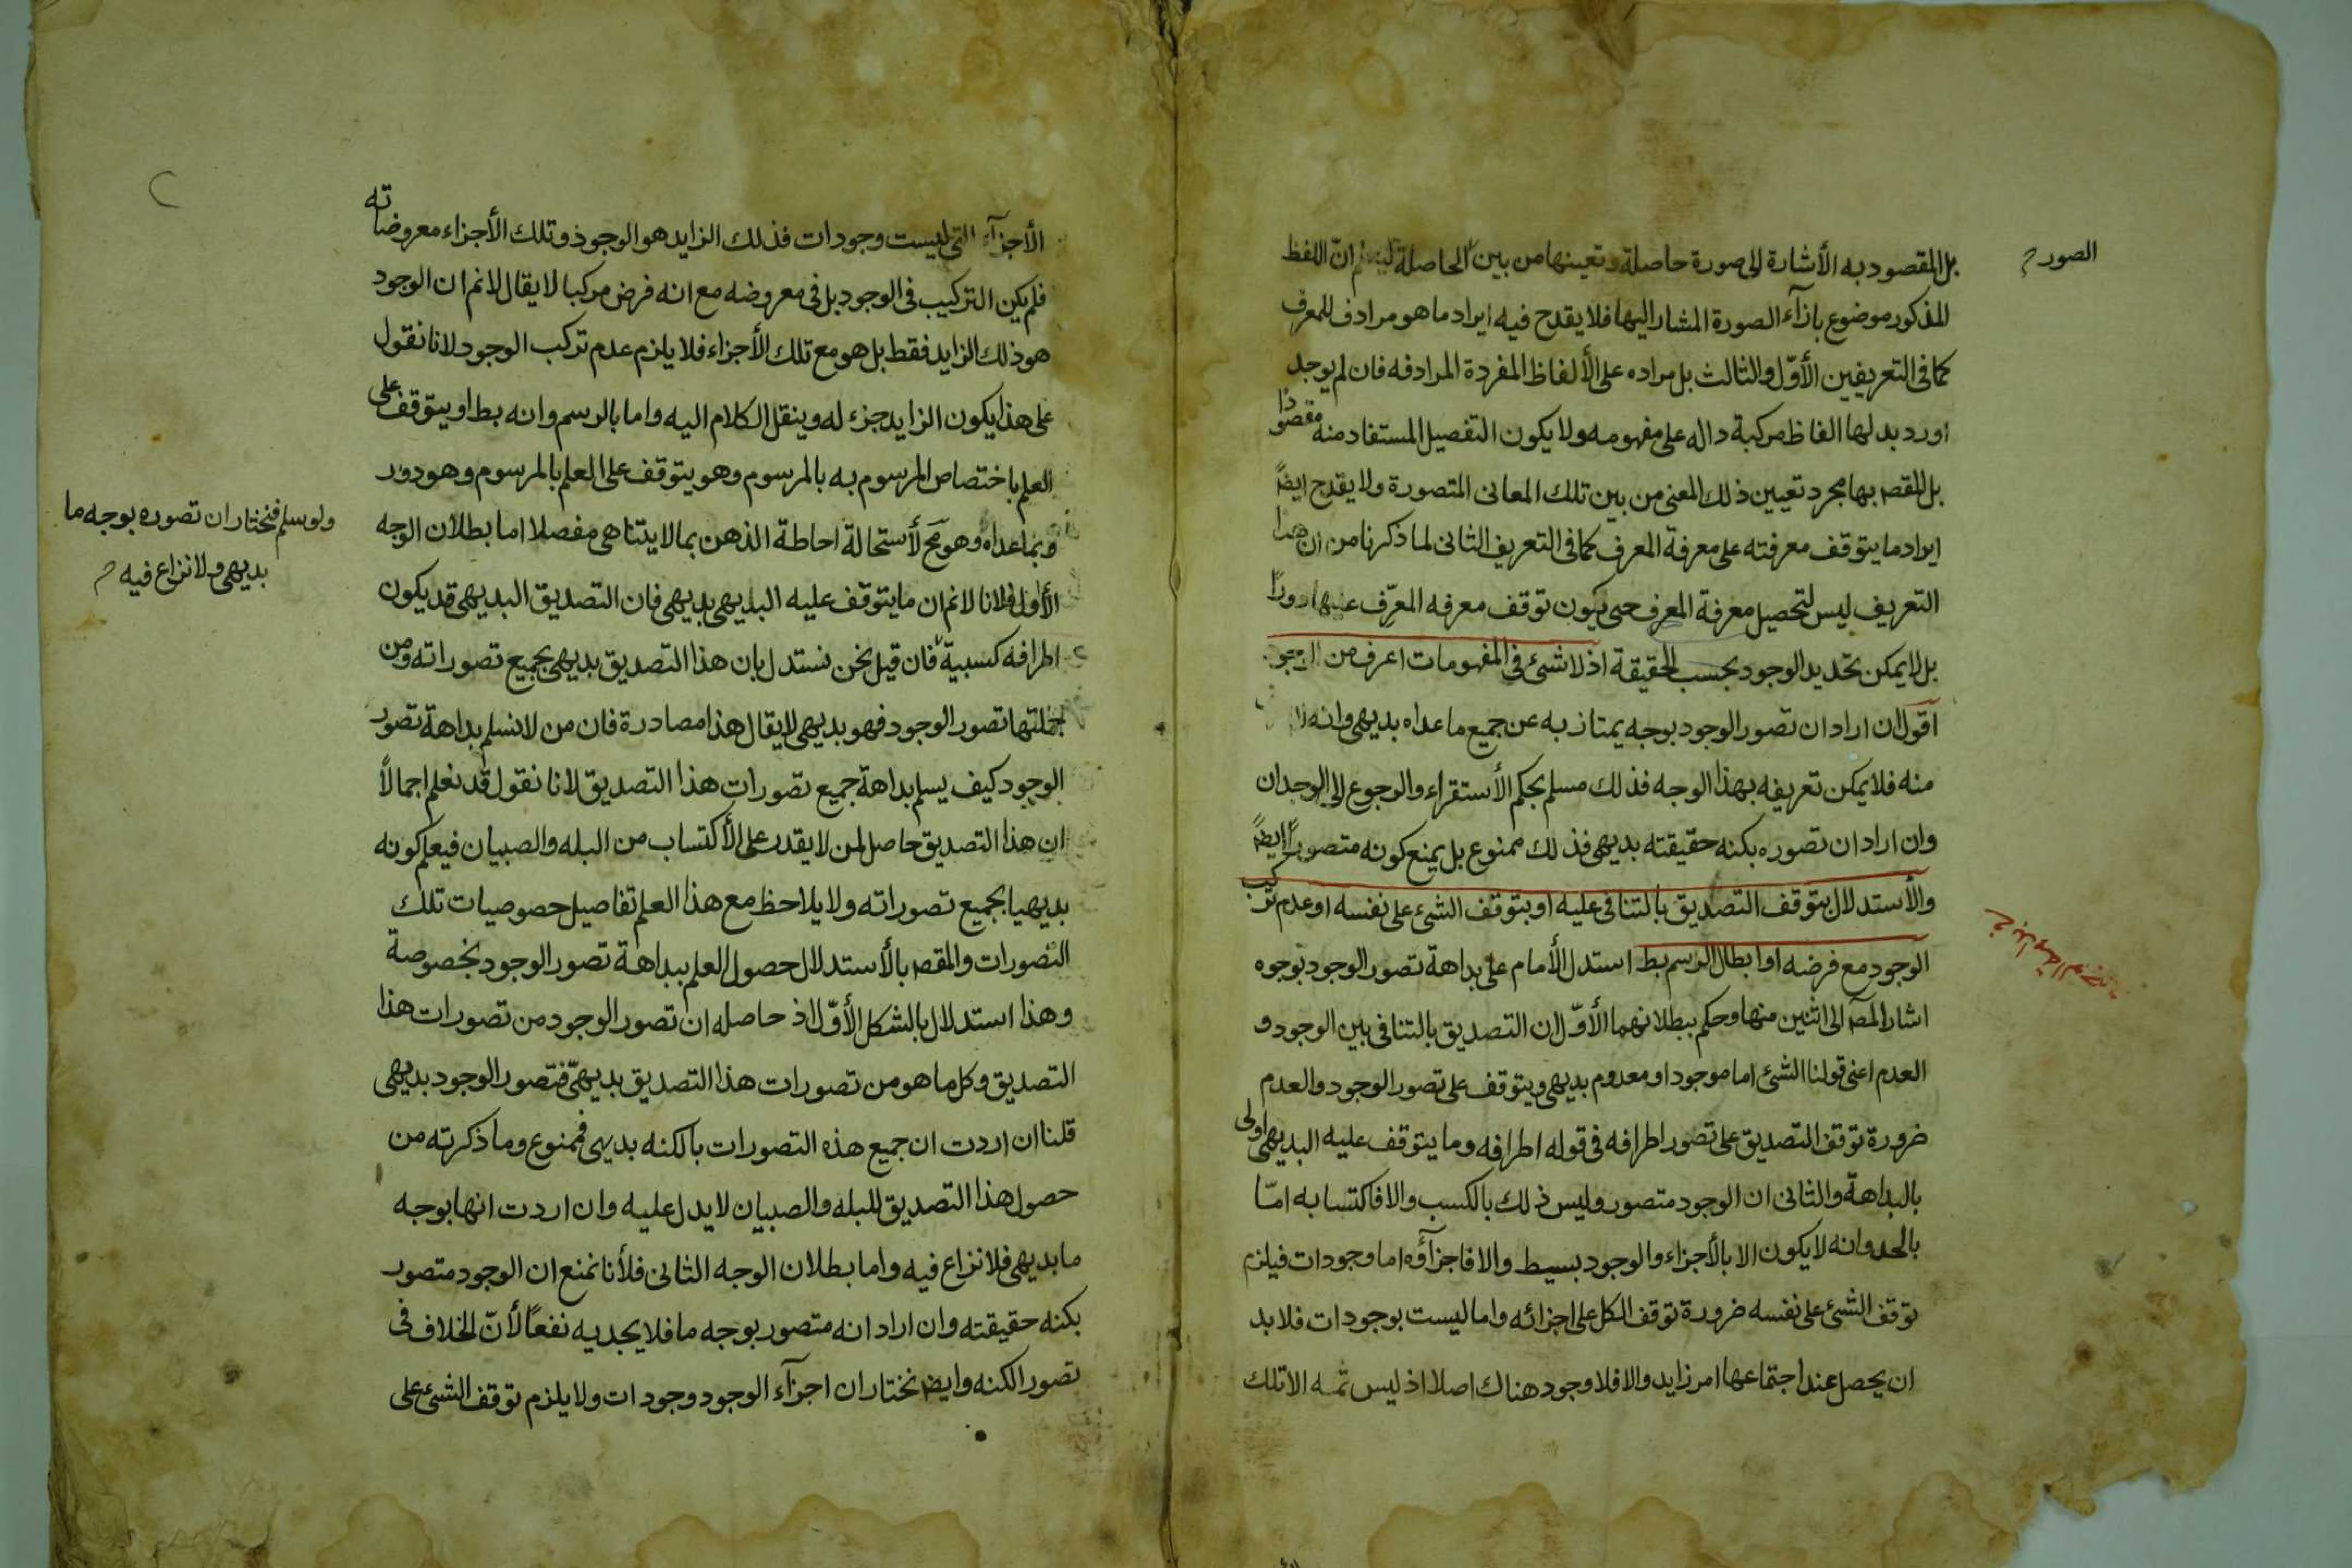 بل المقصود به الأشارة الى صورة حاصلة وتعينها من بين الحاصلة ليعلم انّ اللفظ
الصور
المذكور موضوع بازآء الصورة المشار اليها فلا يقدح فيه ايراد ما هو مرادف للمعرف
كما فى التعريفين الأوّل والثالث بل مراده على الألفاظ المفردة المرادفه فان لم يوجد
اورد بدلها الفاظ مركبة داله على مفهومه ولا يكون التفصيل المستفاد منه مقصودًا
بل المقصـ بها مجرد تعيين ذلك المعنى من بين تلك المعانى المتصورة ولا يقدح ايضًا
ايراد ما يتوقف معرفته على معرفة المعرف كما فى التعريف الثانى لما ذكرنا من ان هذا
التعريف ليس لتحصيل معرفة المعرف حى يكون توقف معرفه المعرّف عليها دورًا
بل لا يمكن تحديد الوجود بحسب الحقيقة اذ لا شئ فى المفهومات اعرف من الوجود
اقول ان اراد ان تصور الوجود بوجه يمتاز به عن جميع ما عداه بديهى وانه لا
منه فلا يمكن تعريفه بهذا الوجه فذلك مسلم بحكم الأستقراء والرجوع الى الوجدان
وان اراد ان تصوره بكنه حقيقته بديهى فذلك ممنوع بل يمنع كونه متصورًا ايضًا
والأستدلال بتوقف التصديق بالتنافى عليه او بتوقف الشئ على نفسه او عدم تركب
الوجود مع فرضه او ابطال الرسم بط استدل الأمام على بداهة تصور الوجود بوجوه
اشار المصـ الى اثنين منها وحكم ببطلانهما الأوّل ان التصديق بالتنافى بين الوجود و
العدم اعنى قولنا الشئ اما موجود او معدوم بديهى ويتوقف على تصور الوجود والعدم
ضرورة توقف التصديق على تصور اطرافه فى قوله اطرافه وما يتوقف عليه البديهى اولى
بالبداهة والثانى ان الوجود متصور وليس ذلك بالكسب والا فاكتسابه امّا
بالحد وانه لا يكون الا بالأجزاء والوجود بسيط والا فاجزآؤه اما وجودات فيلزم
توقف الشئ على نفسه ضرورة توقف الكل على اجزائه واما ليست بوجودات فلا بد
ان يحصل عند اجتماعها امر زايد والا فلا وجود هناك اصلا اذ ليس ثمه الا تلك
الأجزآء التى ليست وجودات فذلك الزايد هو الوجود وتلك الأجزاء معروضاته
فلم يكن التركيب فى الوجود بل فى معروضه مع انه فرض مركبا لا يقال لانم ان الوجود
هو ذلك الزايد فقط بل هو مع تلك الأجزاء فلا يلزم عدم تركب الوجود لانا نقول
على هذا يكون الزايد جزء له وينقل الكلام اليه واما بالرسم وانه بط او يتوقف على
العلم باختصاص المرسوم به بالمرسوم وهو يتوقف على العلم بالمرسوم وهو دور
وبما عداه وهو مح لأستحالة احاطة الذهن بما لا يتناهى مفصلا اما بطلان الوجه
الأول فلانا لانم ان ما يتوقف عليه البديهى بديهى فان التصديق البديهى قد يكون
اطرافه كسبية فان قيل نحن نستدل بان هذا التصديق بديهى بجميع تصوراته ومن
جملتها تصور الوجود فهو بديهى لا يقال هذا مصادرة فان من لا نسلم بداهة تصور
الوجود كيف يسلم بداهة جميع تصورات هذا التصديق لانا نقول قد نعلم اجمالًا
ان هذا التصديق حاصل لمن لا يقدر على الأكتساب من البله والصبيان فيعلم كونه
بديهيا بجميع تصوراته ولا يلاحظ مع هذا العلم تفاصيل خصوصيات تلك
التصورات والمقصـ بالأستدلال حصول العلم ببداهة تصور الوجود بخصوصة
وهذا استدلال بالشكل الأوّل اذ حاصله ان تصور الوجود من تصورات هذا
التصديق وكل ما هو من تصورات هذا التصديق بديهىّ فتصور الوجود بديهى
قلنا ان اردت ان جميع هذه التصورات بالكنه بديهى فممنوع وما ذكرته من
حصول هذا التصديق للبله والصبيان لا يدل عليه وان اردت انها بوجه
ما بديهى فلا نزاع فيه واما بطلان الوجه الثانى فلأنا نمنع ان الوجود متصور
بكنه حقيقته وان اراد انه متصور بوجه ما فلا يجديه نفعًا لأنّ الخلاف فى
تصور الكنه وايضـ نختار ان اجزآء الوجود وجودات ولا يلزم توقف الشئ على
ولو سلم فنختار ان تصوره بوجه ما
بديهى ولا نزاع فيه